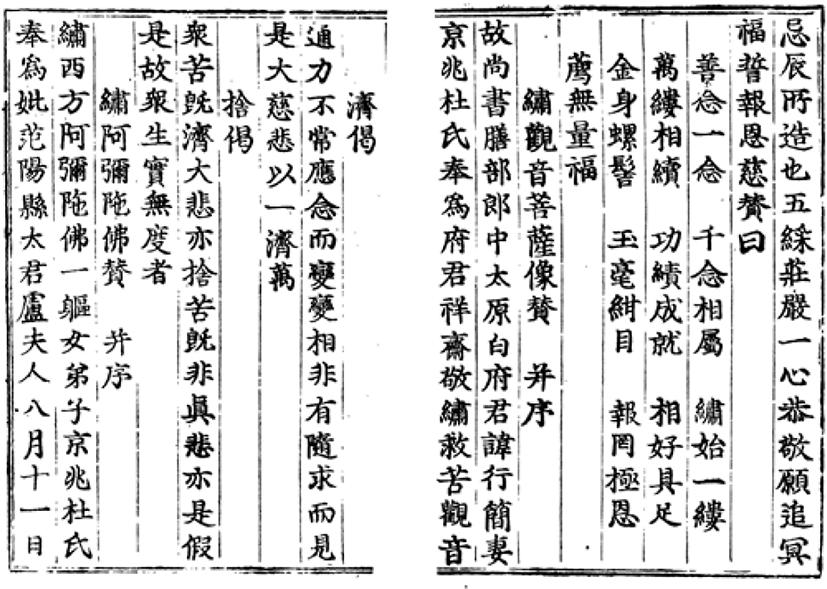 忌辰所造也五綵莊嚴一心恭敬願追冥
福誓報恩慈贊曰
善念一念　千念相屬　繡始一縷
萬縷相續　功績成就　相好具足
金身螺髻　玉毫紺目　報罔極恩
薦無量福
繡觀音菩薩像贊　并序
故尚書膳部郎中太原白府君諱行簡妻
京兆杜氏奉爲府君祥齋敬繡救苦觀音
濟偈
通力不常應念而變變相非有隨求而見
是大慈悲以一濟萬
捨偈
衆苦既濟大悲亦捨苦既非眞悲亦是假
是故衆生實無度者
繡阿彌陁佛贊　并序
繡西方阿彌陁佛一軀女弟子京兆杜氏
奉爲妣范陽縣太君盧夫人八月十一日